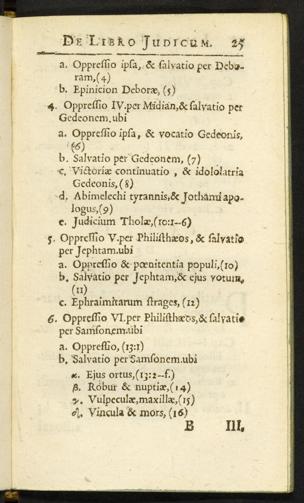 DE LIBRO JUDICUM. 25
a. Oppreſſio ipſa, & ſalvatio per Debo-
ram,(4)
b. Epinicion Deboræ, (5)
4. Oppreſſio IV.per Midian,& ſalvatio per
Gedeonem.ubi
a. Oppreſſio ipſa, & vocatio Gedeonis,
(6)
b. Salvatio per Gedeonem, (7)
c. Victoriæ continuatio , & idololatria
Gedeonis,(8)
d. Abimelechi tyrannis,& Jothami apo-
logus,(9)
e. Judicium Tholæ,(10:1--6)
5. Oppreſſio V.per Philiſthæos, & ſalvatio
per Jephtam.ubi
a. Oppreſſio & pœnitentia populi,(10)
b. Salvatio per Jephtam,& ejus votum,
(11)
c. Ephraimitarum ſtrages, (12)
6. Oppreſſio VI.per Philiſthæos,& ſalvatio
per Samſonem.ubi
a. Oppreſſio, (13:1)
b. Salvatio per Samſonem.ubi
α. Ejus ortus,(13:2--f.)
β. Robur & nuptiæ,(14)
γ. Vulpeculæ,maxillæ,(15)
δ. Vincula & mors, (16)
B III.